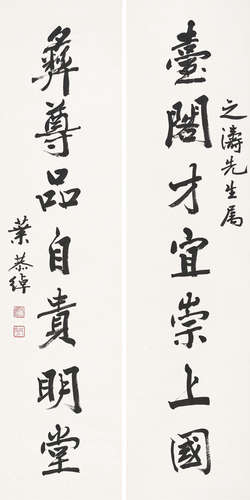 之濤先生属
臺閣才宜崇上國
彝尊品自貴明堂
葉恭綽